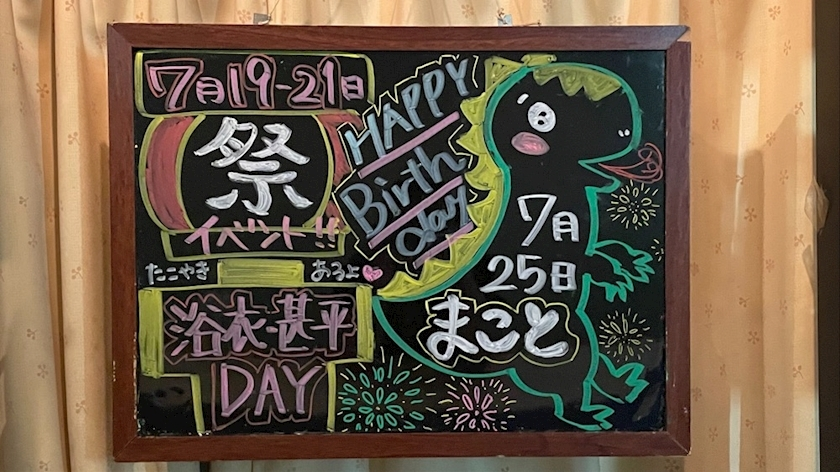 7月19-21日
祭
イベント!!
たこやき あるよ
浴衣・甚平
DAY
HAPPY
Birth
day
7月
25日
まこと